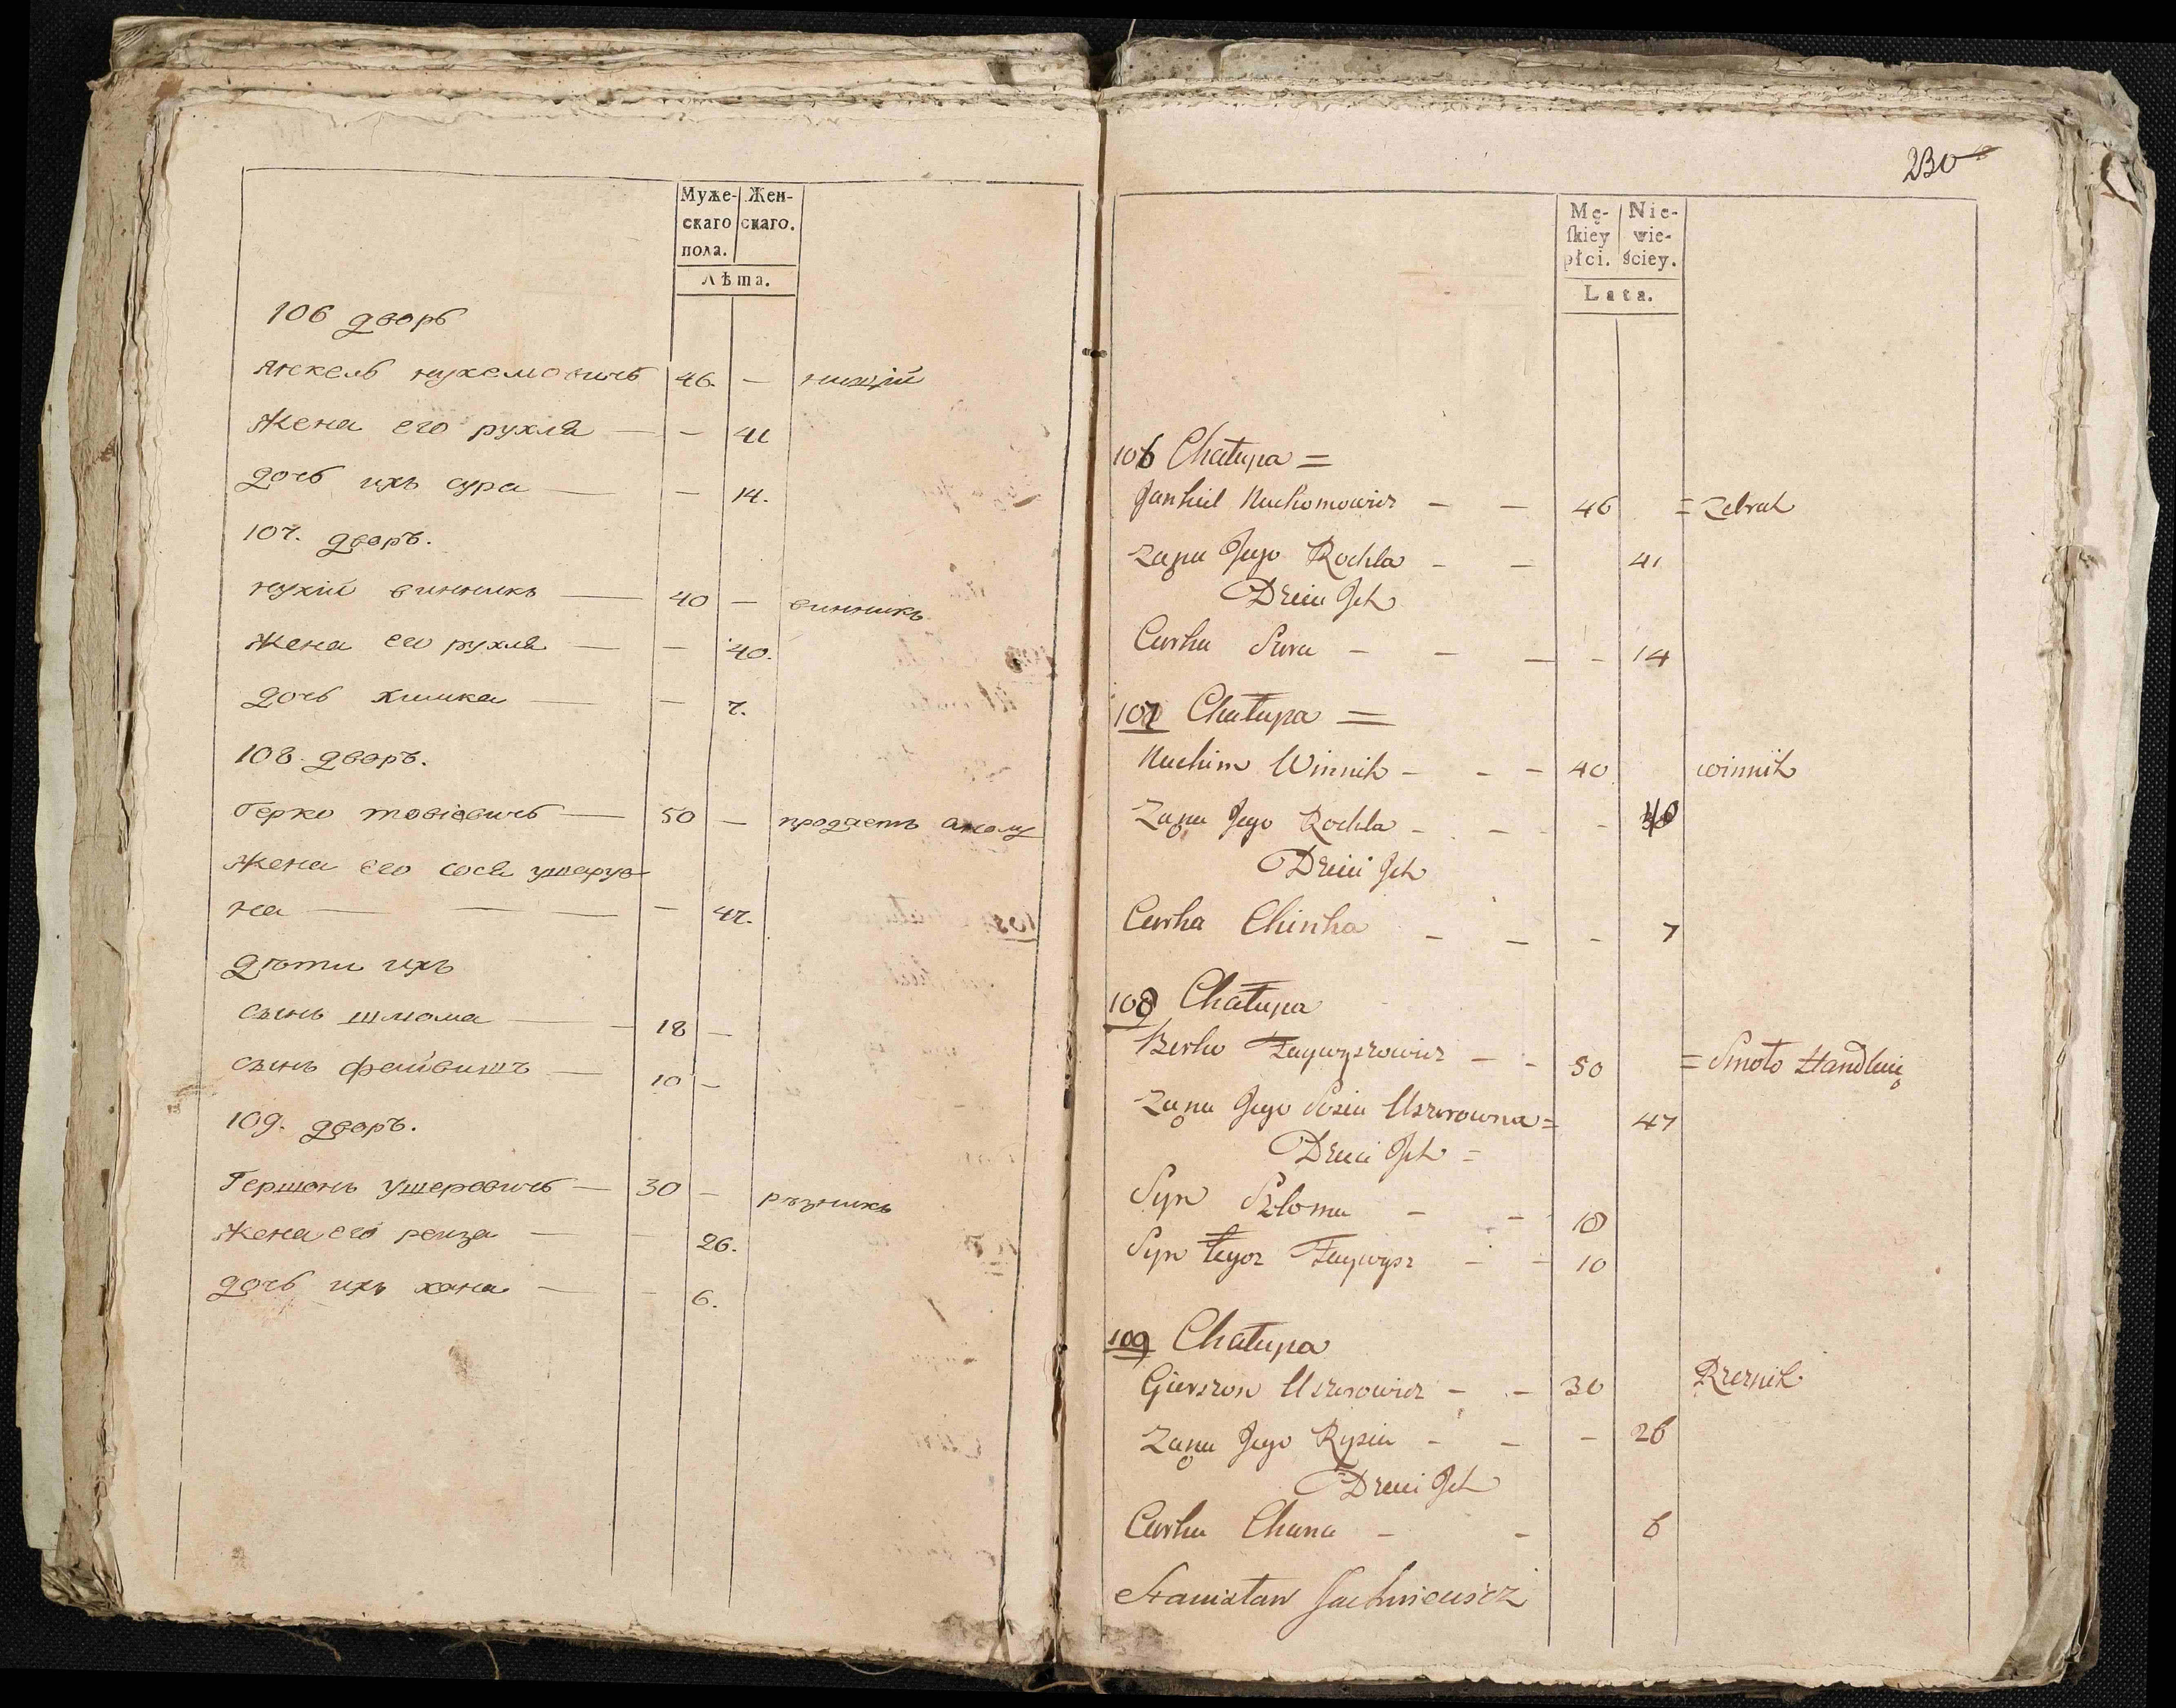 Муже- Жен-
скаго скаго.
пола.
Лѣта.
106 дворъ
Янкель нухемовичъ 46. — нищій
Жена его рухля — — 41
дочь ихъ сура — — 14.
107. дворъ.
нухим винникъ — 40 — винникъ
Жена его рухля — — 40.
дочь химка — — 7.
108. дворъ.
Берко товіевичъ — 50 — продаетъ смолу
Жена его сося ушеров-
на — — — — 47.
дѣти ихъ
сынъ шлюма — — 18 —
сынъ файвишъ — 10 —
109. дворъ.
Гершонъ ушеровичъ — 30 — рѣзникъ
Жена его рейза — — 26.
дочь ихъ хана — — 6.
230
Mę- Nie-
ſkiey wie-
płci. ściey.
Lata.
106 Chałupa =
Jankiel Nuchomowicz — — 46 = Zebrak
Ząna Jego Rochla — — 41
Dzieci Jch
Curka Sura — — — — 14
107 Chałupa =
Nuchim Winnik — — — 40 winnik
Ząna Jego Rochla — — — 40
Dzieci Jch
Curka Chinka — — — 7
108 Chałupa
Berko — — 50 = Smoło Handluię
Ząna Jego Sosia Uszerowna = 47
Dzieci Jch =
Syn Szloma — — 18
Syn tegoz Faywysz — — 10
109 Chałupa
Gierszon Uszerowicz — — 30 Rzeznik
Ząna Jego Rysia — — — 26
Dzieci Jch
Curka Chana — — 6
Stanisław